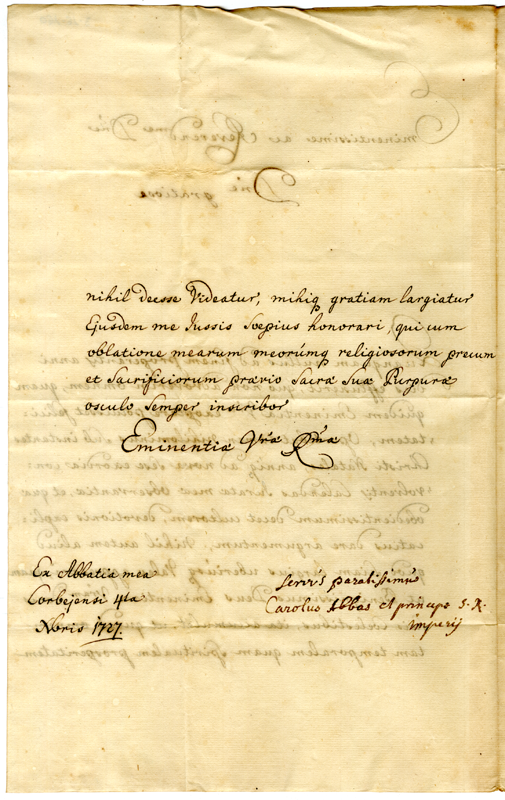 nihil deesse Videatur, mihiq gratiam largiatur
Ejusdem me Jussis Soepius honorari, qui cum
oblatione mearum meorúmq religiosorum precum
et Sacrificiorum prævio Sacræ Suæ Purpuræ
osculo Semper inscribor
Eminentiæ Vræ Rmæ
Ex Abbatia mea
Corbejensi 4ta
Nbris 1727.
servus paratissimus
Carolus Abbas et princeps S. R.
Imperij